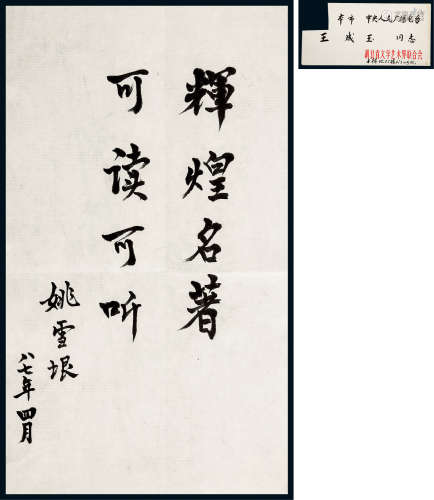 輝煌名著
可读可听
姚雪垠
八七年四月
本市 中央人民广播电台
王成玉 同志
湖北省文学艺术界联合会